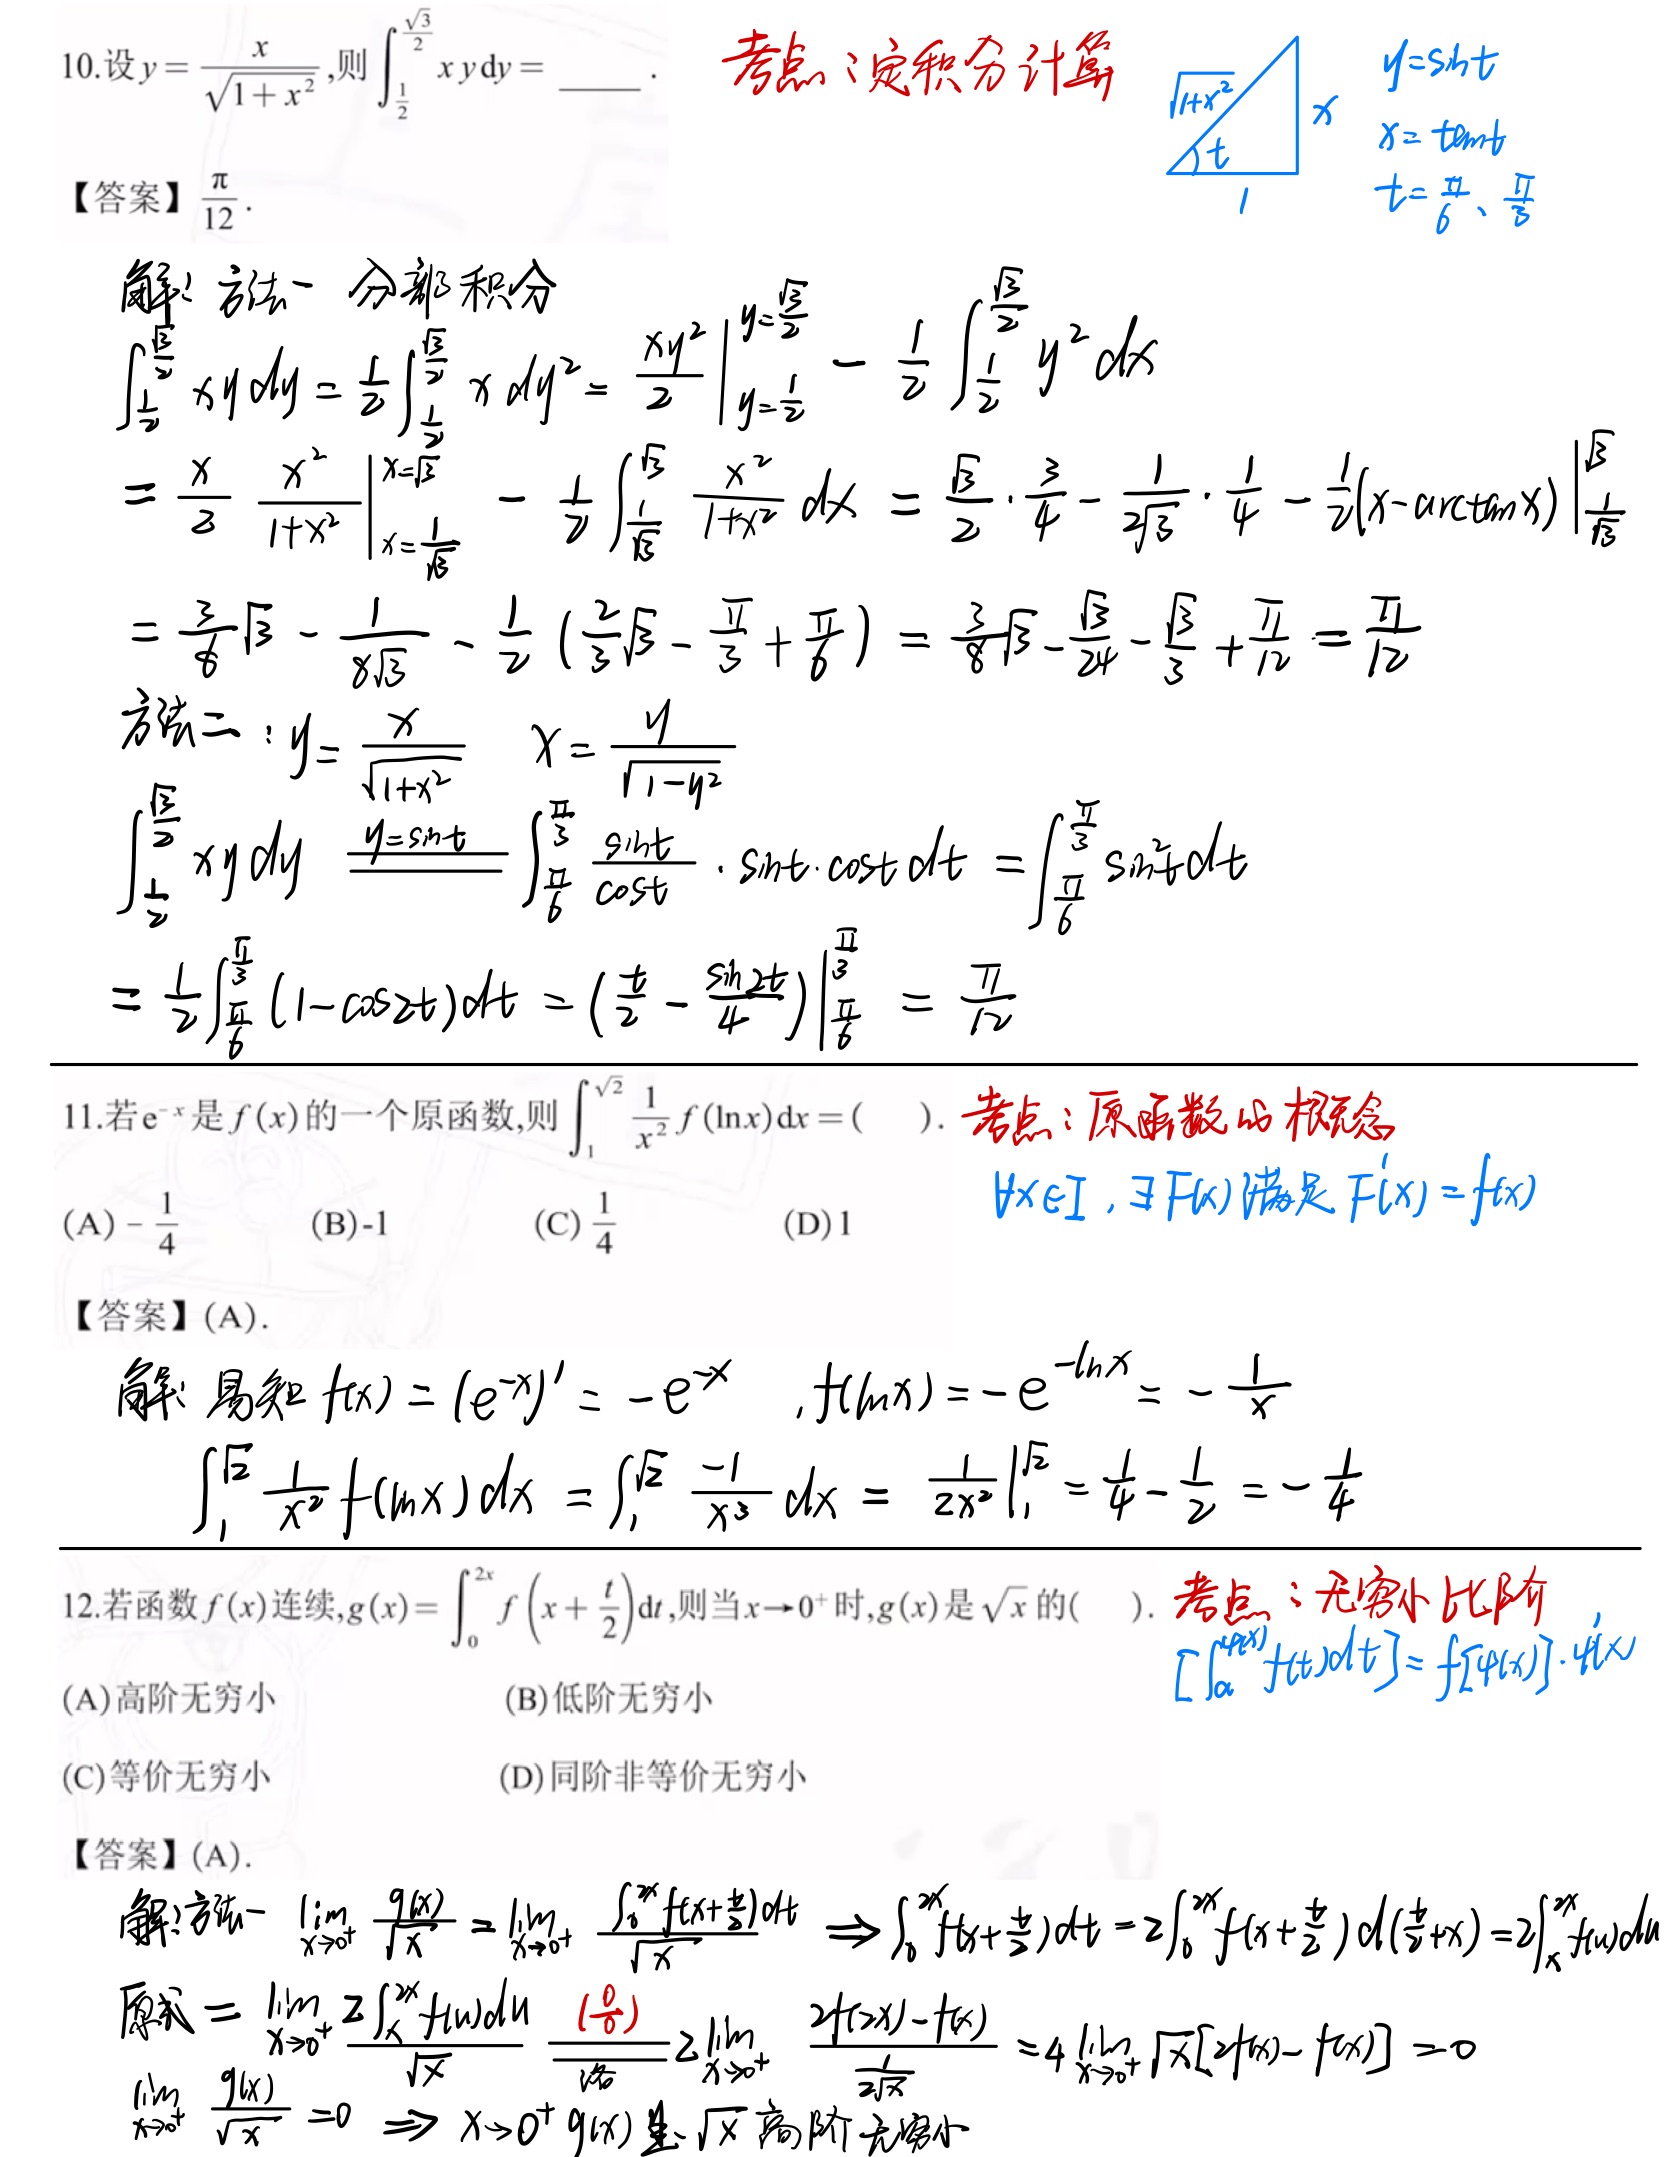 10.设 y = x/√(1+x²) ,则 ∫_{1/2}^{√3/2} x y dy = ____ .
考点：定积分计算
√(1+x²) x t 1
y=sint
x=tant
t=π/6、π/3
【答案】π/12 .
解：方法一 分部积分
∫_{1/2}^{√3/2} xy dy = 1/2 ∫_{1/2}^{√3/2} x dy² = xy²/2 |_{y=1/2}^{y=√3/2} - 1/2 ∫_{1/2}^{√3/2} y² dx
= x/2 x²/(1+x²) |_{x=1/√3}^{x=√3} - 1/2 ∫_{1/√3}^{√3} x²/(1+x²) dx = √3/2 · 3/4 - 1/(2√3) · 1/4 - 1/2 (x-arctanx) |_{1/√3}^{√3}
= 3/8 √3 - 1/(8√3) - 1/2 (2/3 √3 - π/3 + π/6) = 3/8 √3 - √3/24 - √3/3 + π/12 = π/12
方法二：y = x/√(1+x²) x = y/√(1-y²)
∫_{1/2}^{√3/2} xy dy =(y=sint)= ∫_{π/6}^{π/3} sint/cost · sint·cost dt = ∫_{π/6}^{π/3} sin²t dt
= 1/2 ∫_{π/6}^{π/3} (1-cos2t)dt = (t/2 - sin2t/4) |_{π/6}^{π/3} = π/12
11.若 e^{-x} 是 f(x) 的一个原函数,则 ∫_1^{√2} 1/x² f(lnx)dx = ( ).
考点：原函数的概念
∀x∈I , ∃ F(x) 满足 F'(x) = f(x)
(A) - 1/4 (B) -1 (C) 1/4 (D) 1
【答案】(A).
解：易知 f(x) = (e^{-x})' = -e^{-x} , f(lnx) = -e^{-lnx} = - 1/x
∫_1^{√2} 1/x² f(lnx)dx = ∫_1^{√2} -1/x³ dx = 1/(2x²) |_1^{√2} = 1/4 - 1/2 = - 1/4
12.若函数 f(x) 连续, g(x) = ∫_0^{2x} f(x + t/2)dt ,则当 x→0⁺ 时, g(x) 是 √x 的( ).
考点：无穷小比阶
[∫_a^{φ(x)} f(t)dt]' = f[φ(x)]·φ'(x)
(A)高阶无穷小 (B)低阶无穷小
(C)等价无穷小 (D)同阶非等价无穷小
【答案】(A).
解：方法一 lim_{x→0⁺} g(x)/√x = lim_{x→0⁺} ∫_0^{2x} f(x+t/2)dt / √x ⇒ ∫_0^{2x} f(x+t/2)dt = 2∫_0^{2x} f(x+t/2) d(t/2+x) = 2∫_x^{2x} f(u)du
原式 = lim_{x→0⁺} 2∫_x^{2x} f(u)du / √x =(0/0)洛= 2 lim_{x→0⁺} (2f(2x)-f(x)) / (1/(2√x)) = 4 lim_{x→0⁺} √x[2f(x)-f(x)] = 0
lim_{x→0⁺} g(x)/√x = 0 ⇒ x→0⁺ g(x) 是 √x 高阶无穷小